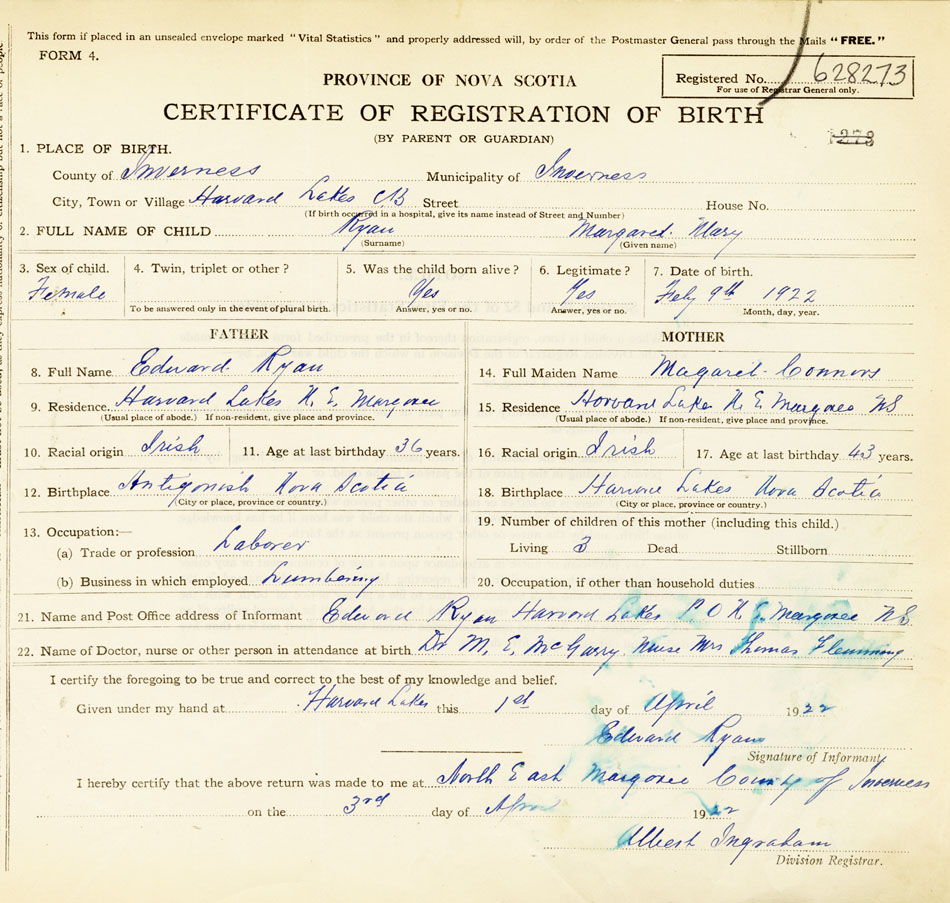 This form if placed in an unsealed envelope marked "Vital Statistics" and properly addressed will, by order of the Postmaster General pass through the Mails "FREE."
FORM 4.
PROVINCE OF NOVA SCOTIA
Registered No. 628273
For use of Registrar General only.
CERTIFICATE OF REGISTRATION OF BIRTH
(BY PARENT OR GUARDIAN)
1. PLACE OF BIRTH.
County of Inverness Municipality of Inverness
City, Town or Village Harvard Lakes CB Street House No.
(If birth occurred in a hospital, give its name instead of Street and Number)
2. FULL NAME OF CHILD Ryan Margaret Mary
(Surname) (Given name)
3. Sex of child. 4. Twin, triplet or other? 5. Was the child born alive? 6. Legitimate? 7. Date of birth.
Female Yes Yes Feby 9th 1922
To be answered only in the event of plural birth. Answer, yes or no. Answer, yes or no. Month, day, year.
FATHER
8. Full Name Edward Ryan
9. Residence Harvard Lakes N. E. Margaree
(Usual place of abode.) If non-resident, give place and province.
10. Racial origin Irish 11. Age at last birthday 36 years.
12. Birthplace Antigonish Nova Scotia
(City or place, province or country.)
13. Occupation:—
(a) Trade or profession Laborer
(b) Business in which employed Lumbering
MOTHER
14. Full Maiden Name Magaret Connors
15. Residence Harvard Lake N. E. Margaree NS
(Usual place of abode.) If non-resident, give place and province.
16. Racial origin Irish 17. Age at last birthday 43 years.
18. Birthplace Lakes Nova Scotia
(City or place, province or country.)
19. Number of children of this mother (including this child.)
Living 3 Dead Stillborn
20. Occupation, if other than household duties
21. Name and Post Office address of Informant Edward Ryan Harvard Lakes P O N E Margaree NS
22. Name of Doctor, nurse or other person in attendance at birth Dr M. E. McGarry Nurse Mrs Thomas Flemming
I certify the foregoing to be true and correct to the best of my knowledge and belief.
Given under my hand at Harvard Lakes this 1st day of April 1922
Edward Ryan
Signature of Informant
I hereby certify that the above return was made to me at North East Margaree County of Inverness
on the 3rd day of April 1922
Albert Ingraham
Division Registrar.